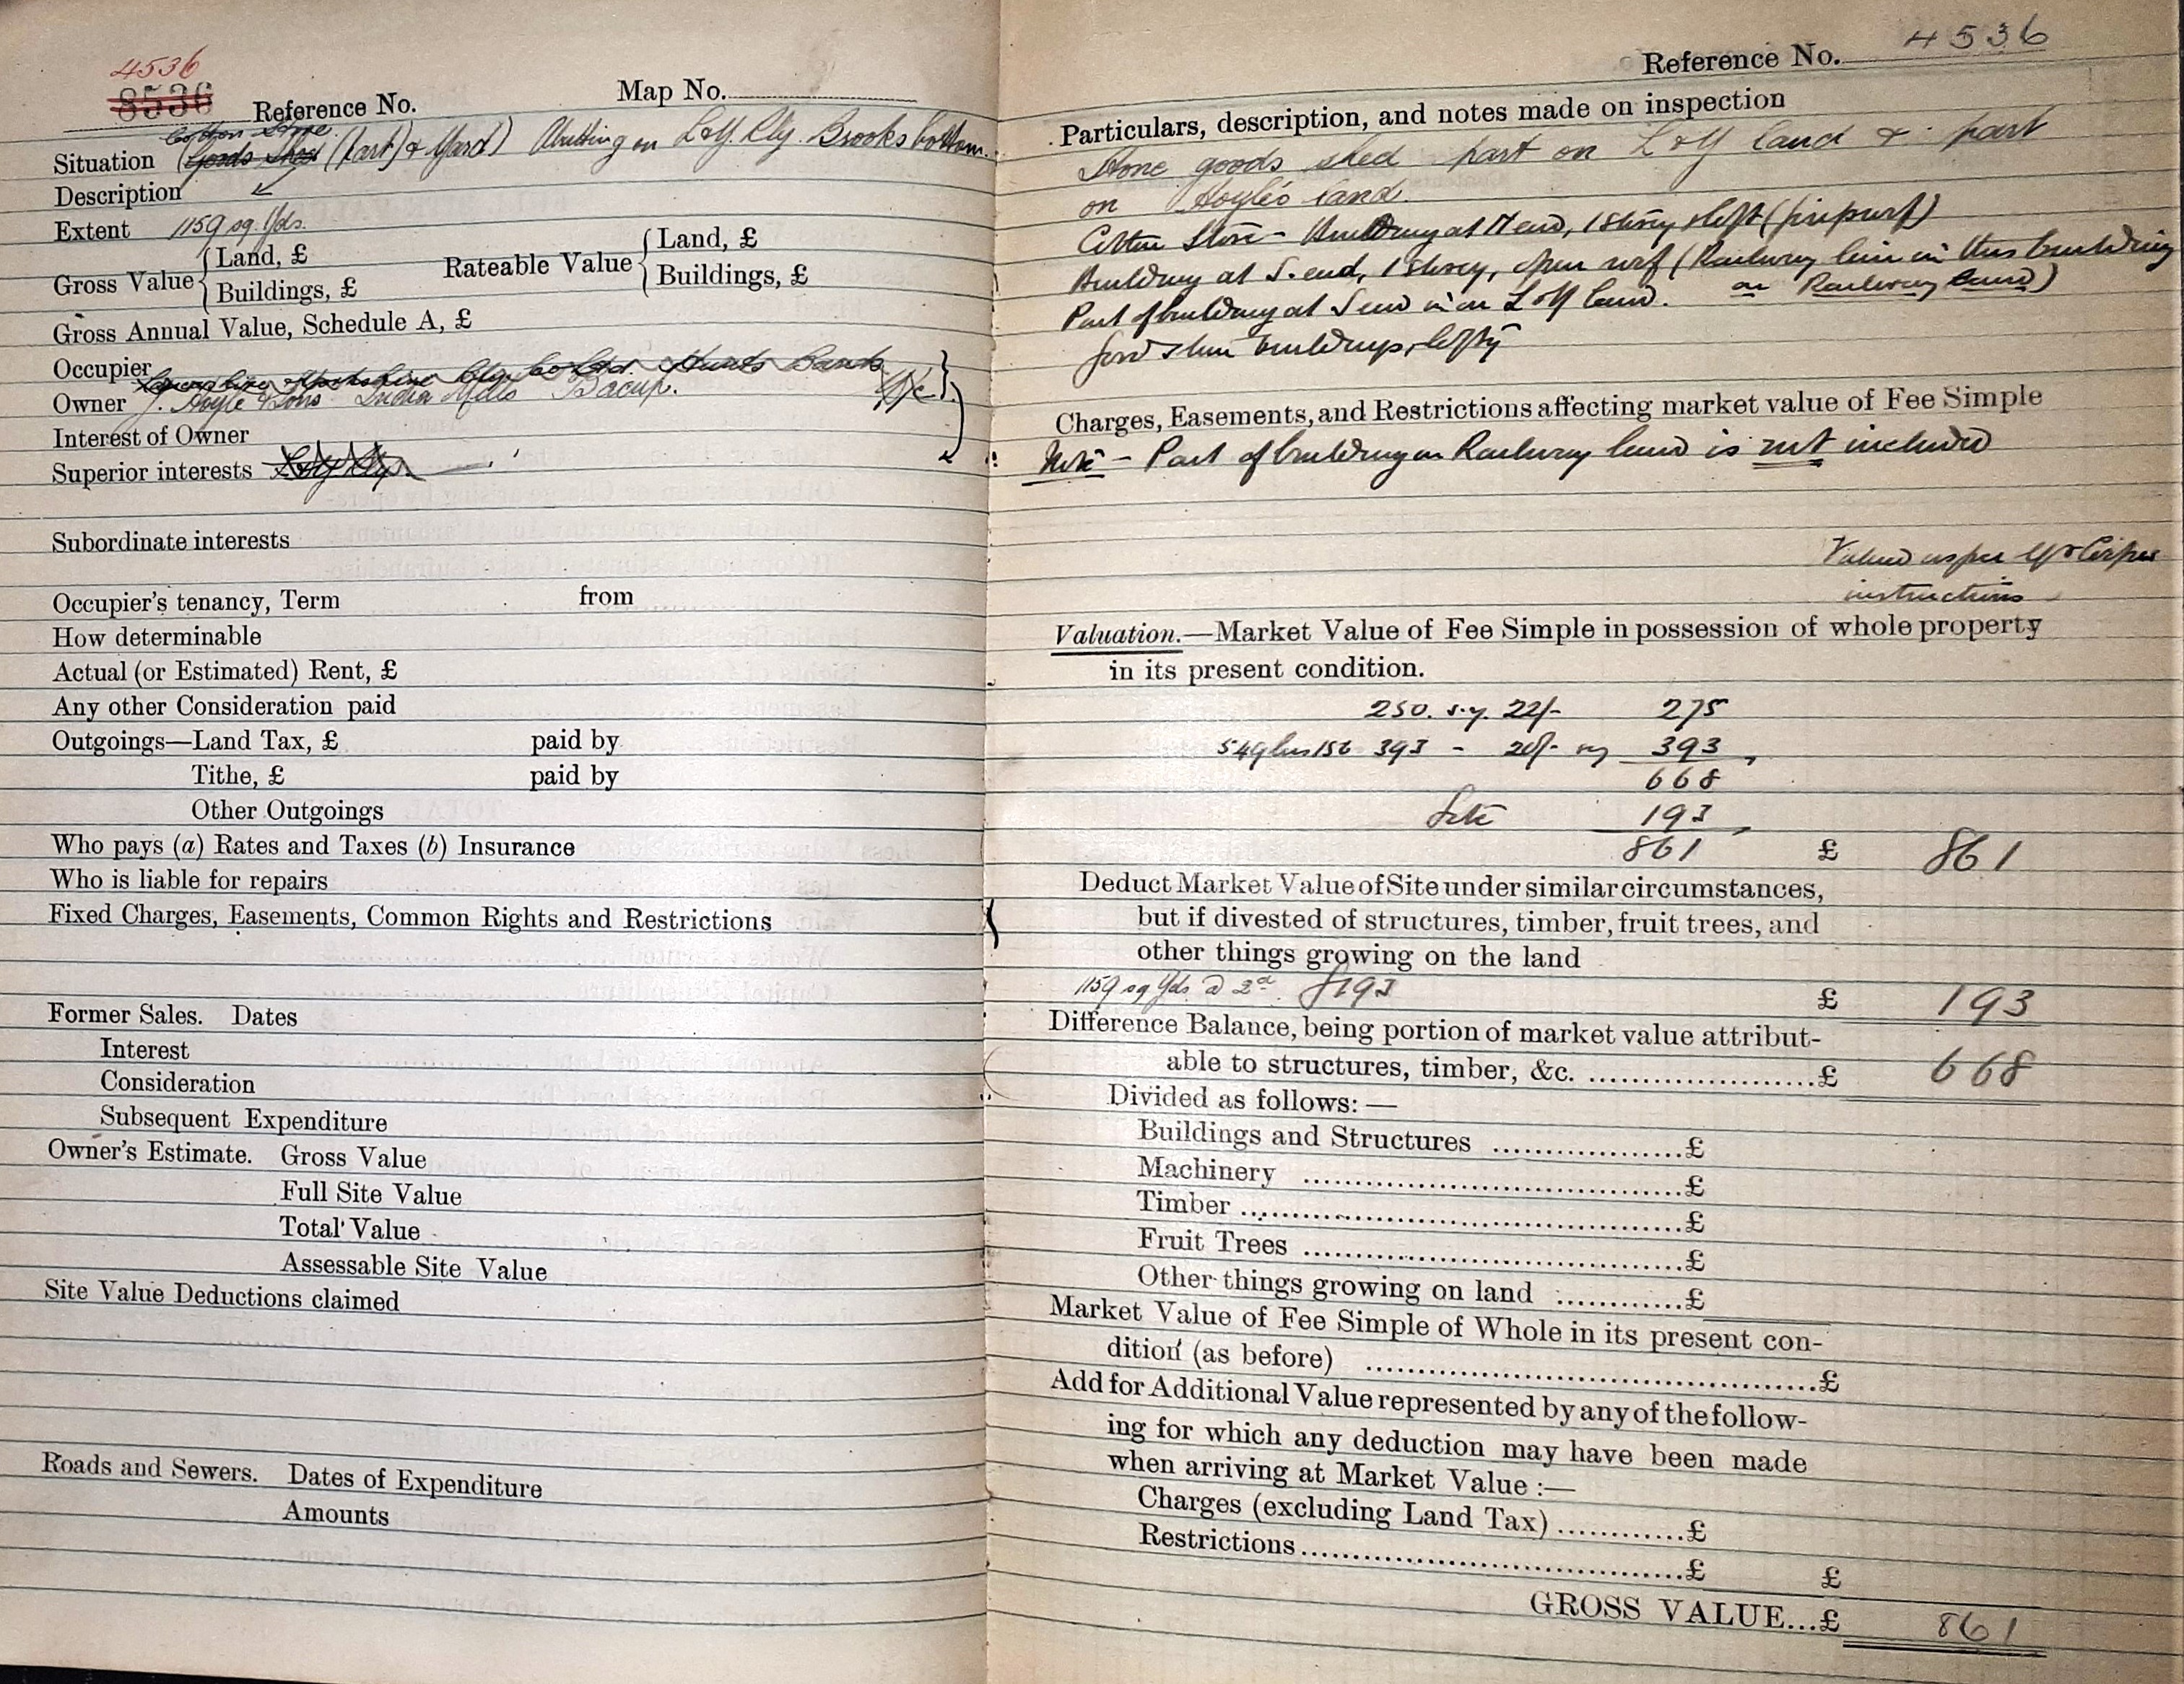 4536
8536 Reference No. Map No.
Cotton Store
Situation (Goods Shed (Part) & Yard) Abutting on L&Y. Rly. Brooksbottom.
Description
Extent 1159 sq. Yds.
Gross Value { Land, £ Rateable Value { Land, £
Buildings, £ Buildings, £
Gross Annual Value, Schedule A, £
Occupier
Owner J. Hoyle & Sons India Mills Bacup.
Interest of Owner
Superior interests L&Y Rly.
Subordinate interests
Occupier's tenancy, Term from
How determinable
Actual (or Estimated) Rent, £
Any other Consideration paid
Outgoings—Land Tax, £ paid by
Tithe, £ paid by
Other Outgoings
Who pays (a) Rates and Taxes (b) Insurance
Who is liable for repairs
Fixed Charges, Easements, Common Rights and Restrictions
Former Sales. Dates
Interest
Consideration
Subsequent Expenditure
Owner's Estimate. Gross Value
Full Site Value
Total Value
Assessable Site Value
Site Value Deductions claimed
Roads and Sewers. Dates of Expenditure
Amounts
Reference No. 4536
Particulars, description, and notes made on inspection
Stone goods shed part on L&Y land & part
on Hoyle's land.
Cotton Store - Building at N end, 1 storey & loft (fireproof)
Building at S. end, 1 storey, open roof (Railway line in this building
on Railway land)
Part of building at S end is on L&Y land.
Good stone buildings, lofty
Charges, Easements, and Restrictions affecting market value of Fee Simple
Note - Part of building on Railway land is not included
Valued as per Mr
instructions
Valuation.—Market Value of Fee Simple in possession of whole property
in its present condition.
250. s.y. 22/- 275
549 less 156 393 - 20/- 393
668
Site 193
861 £ 861
Deduct Market Value of Site under similar circumstances,
but if divested of structures, timber, fruit trees, and
other things growing on the land
1159 sq Yds. @ 2d £193 £ 193
Difference Balance, being portion of market value attribut-
able to structures, timber, &c. £ 668
Divided as follows:—
Buildings and Structures £
Machinery £
Timber £
Fruit Trees £
Other things growing on land £
Market Value of Fee Simple of Whole in its present con-
dition (as before) £
Add for Additional Value represented by any of the follow-
ing for which any deduction may have been made
when arriving at Market Value :—
Charges (excluding Land Tax) £
Restrictions £ £
GROSS VALUE...£ 861